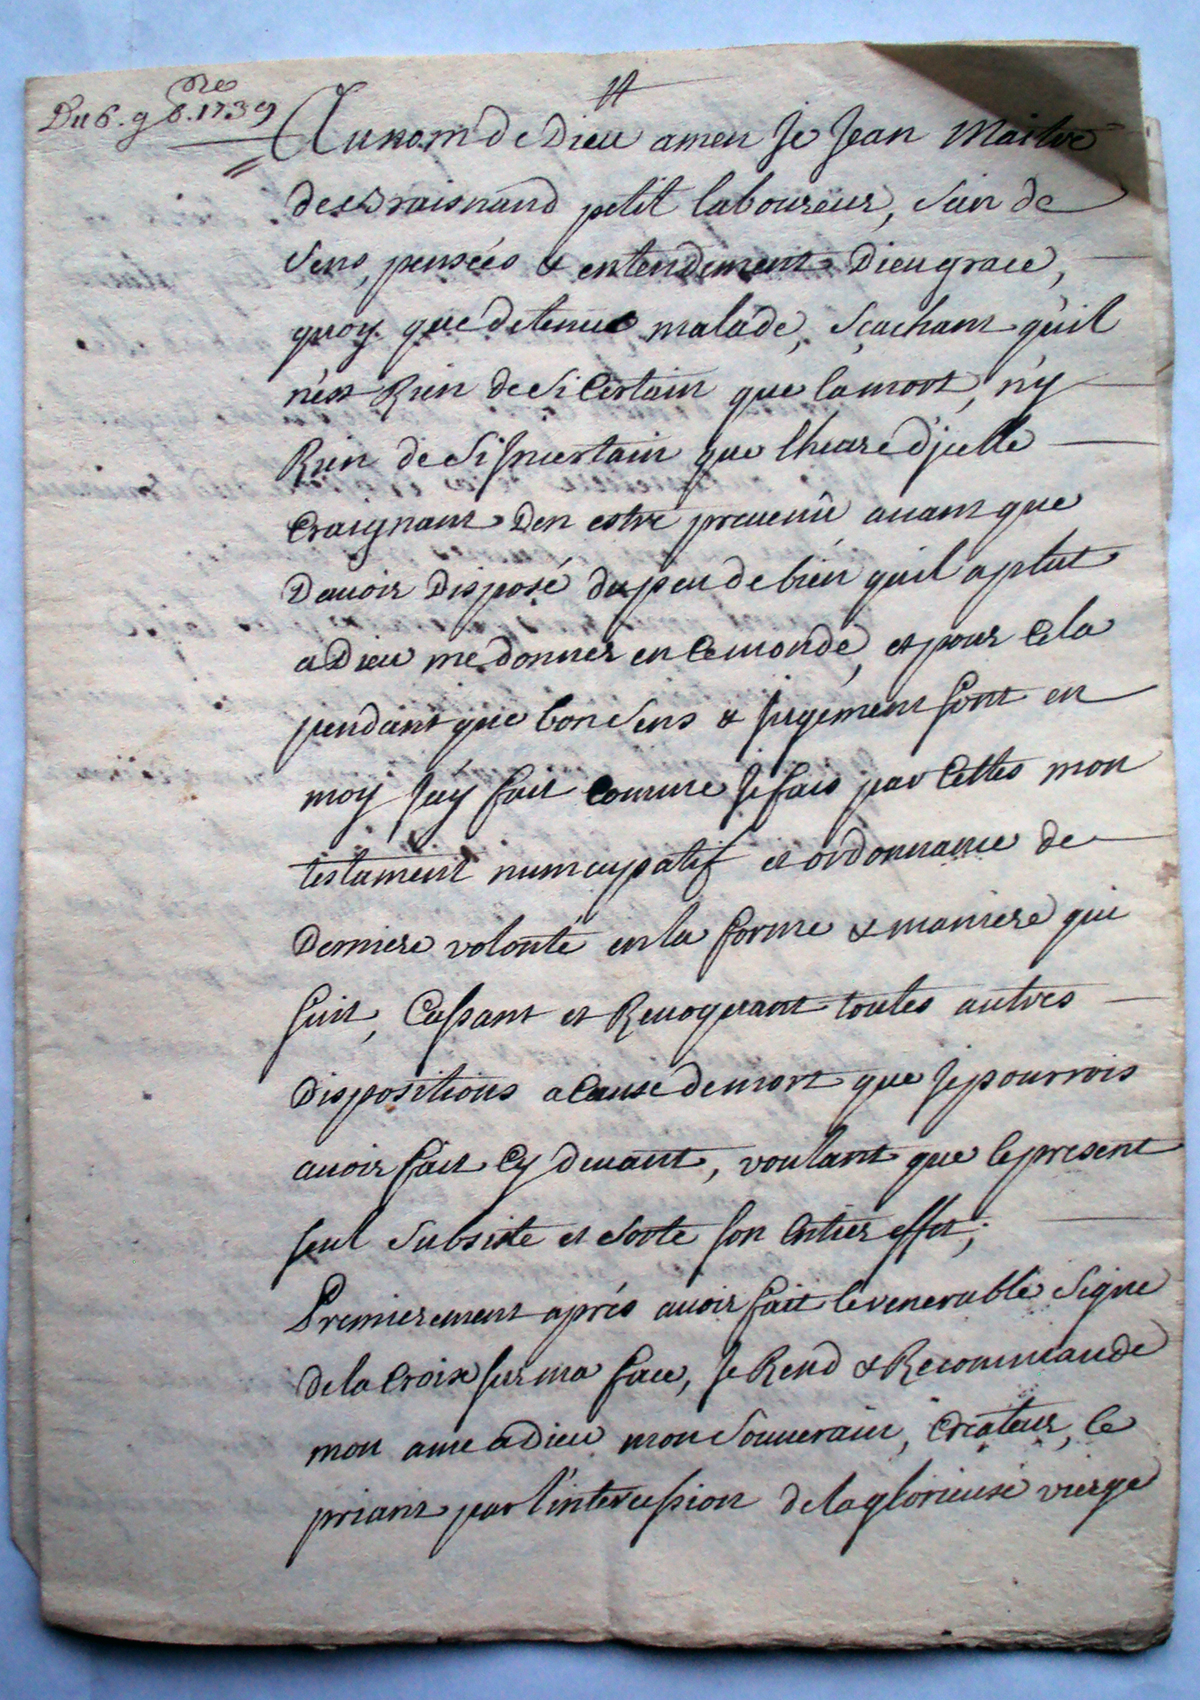 Du 6. 9bre 1739
Au nom de Dieu amen Je Jean Maitre
des Draisnand petit laboureur, sain de
sens, pensées & entendement Dieu grace,
quoy que detenue malade, sçachant quil
nest Rien de si Certain que la mort, n'y
Rien de si Jncertain que lheure d'jcelle
Craignant Den estre preuenû auant que
Dauoir Disposé du peu de bién quil a plut
a Dieu me donner en ce monde, et pour Cela
pendant que bon sens & jugement sont en
moy Jay fait comme Je fais par Cettes mon
testament nuncupatif et ordonnance de
Derniere volonté en la forme & maniere qui
suit, Cassant et Reuoquant toutes autres
Dispositions a Cause de mort que Je pourrois
auoir fait Cy deuant, voulant que le present
seul subsiste et sorte son Entier effet;
Premierement aprés auoir fait le venerable signe
de la Croix sur ma face, Je Rend & Recommande
mon ame a Dieu mon souuerain, Créateur, le
priant par l'intercession de la glorieuse vierge